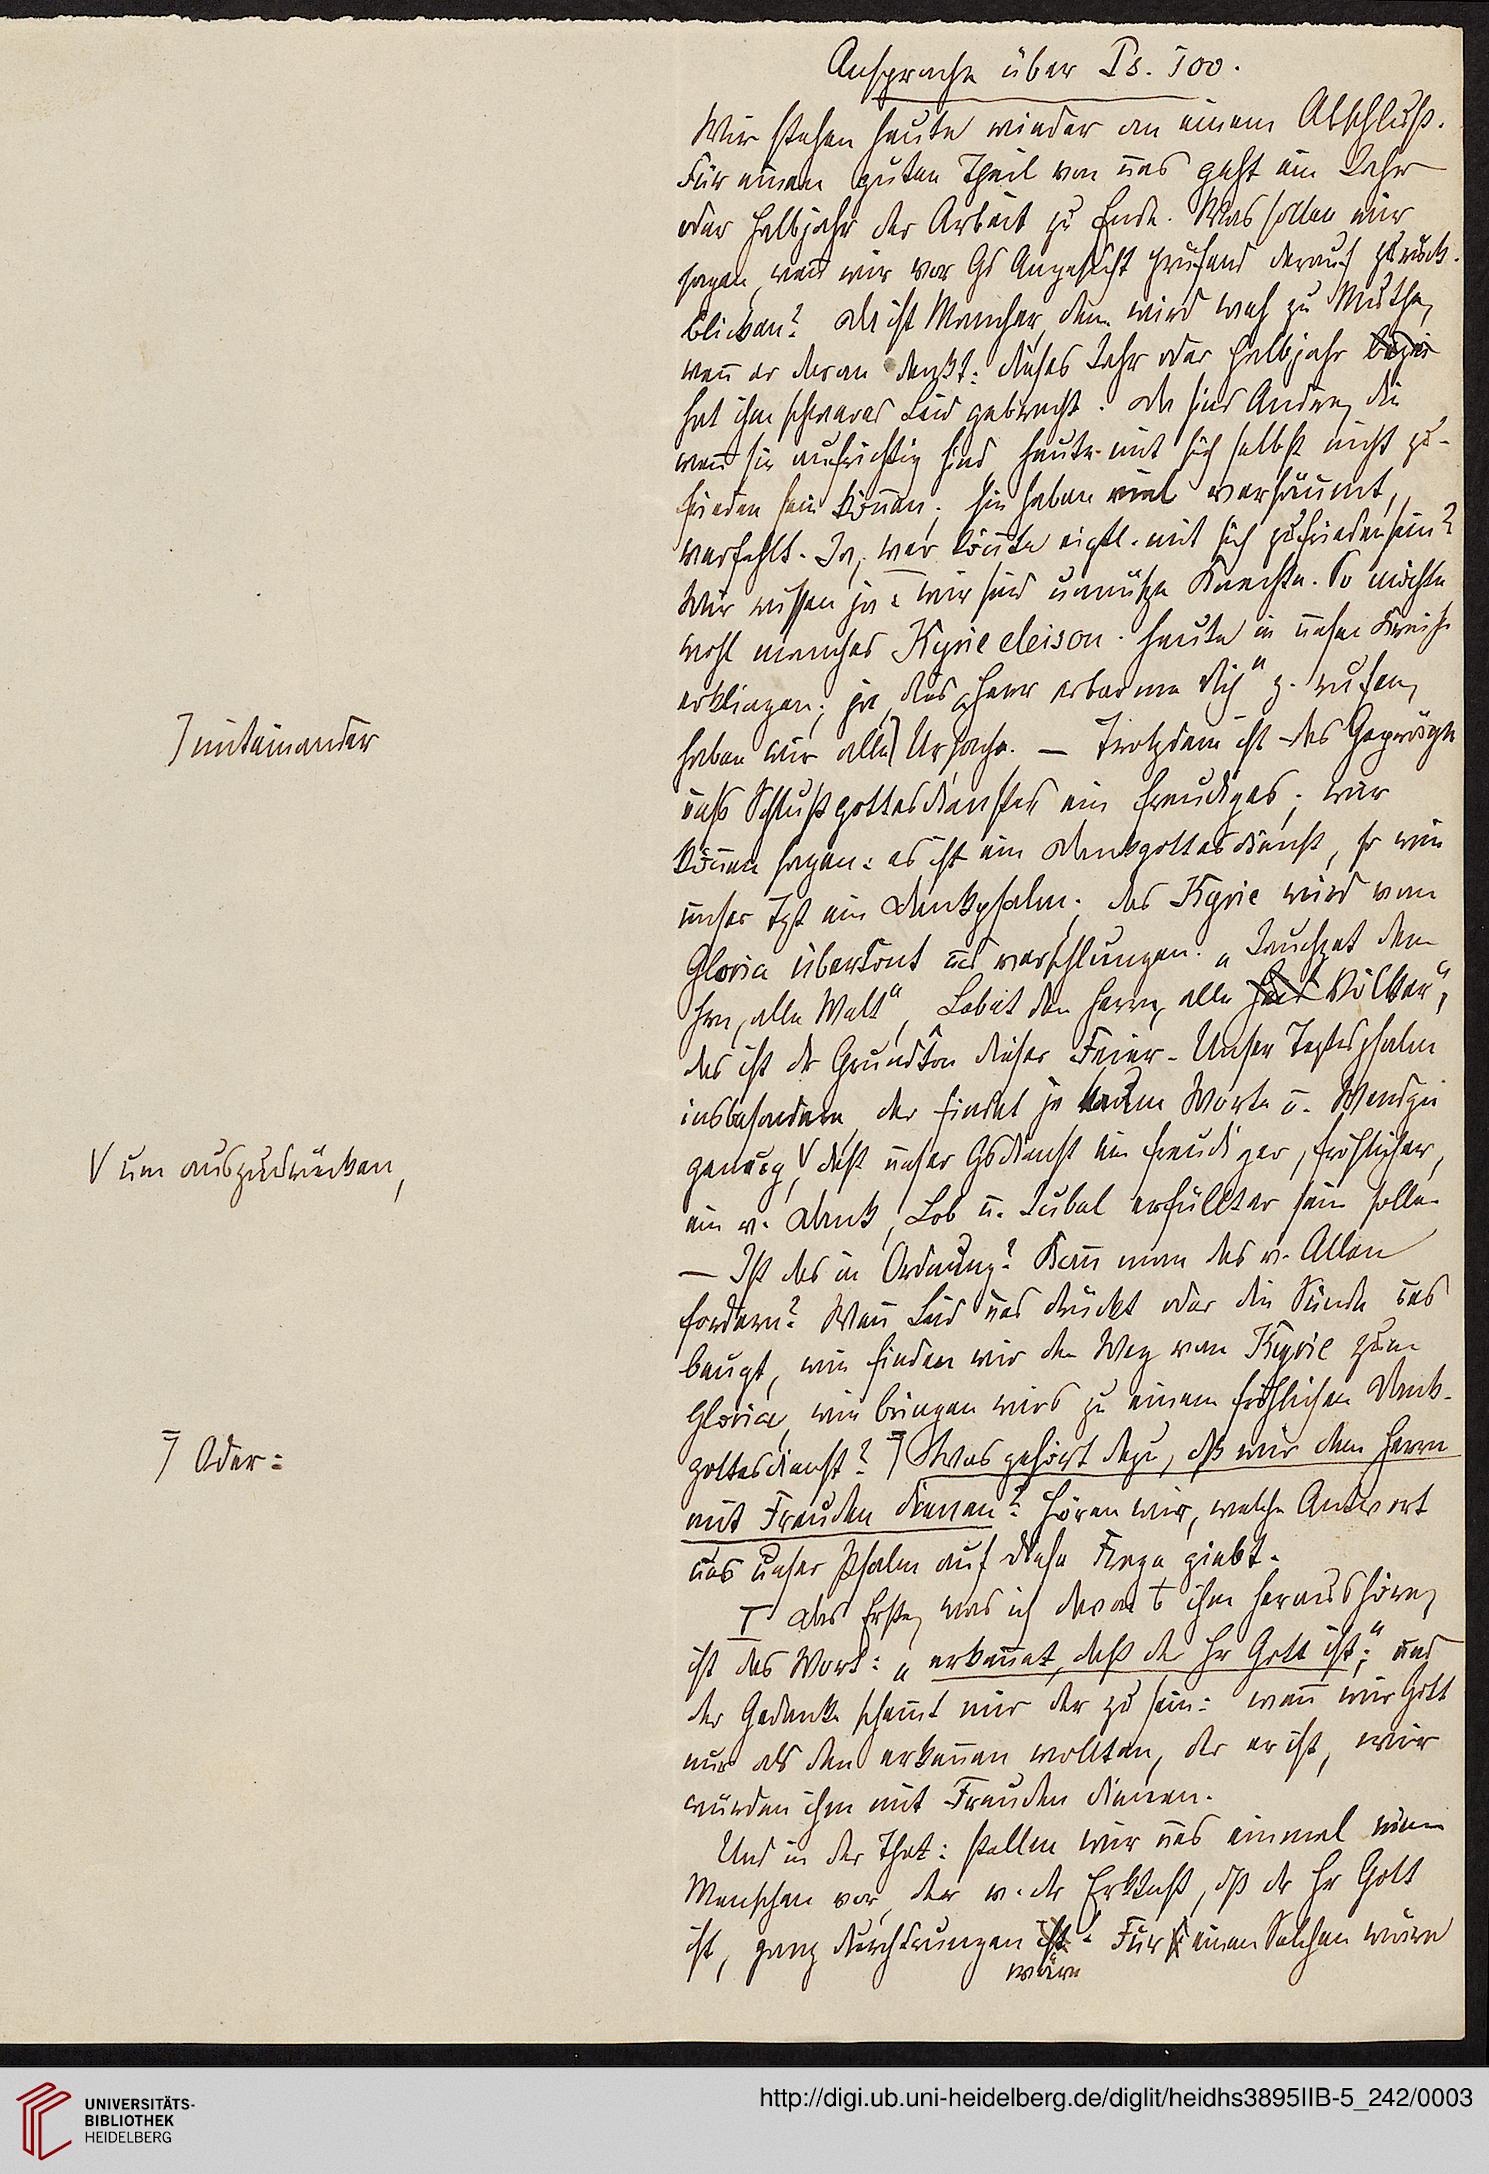 Ansprache über Ps. 100.
Wir stehen heute wieder an einem Abschluß.
Für einen guten Theil von uns geht ein Jahr
oder Halbjahr der Arbeit zu Ende. Was sollen wir
sagen, wenn wir vor Gs Angesicht prüfend darauf zurück-
blicken? Da ist Mancher, dem wird weh zu Muthe,
wenn er daran denkt: dieses Jahr oder Halbjahr
hat ihm schweres Leid gebracht. Da sind Andre, die
wenn sie aufrichtig sind heute mit sich selbst nicht zu-
frieden sein können; sie haben viel versäumt,
verfehlt. Ja, wer könnte eigtl. mit sich zufrieden sein?
Wir wissen ja: wir sind unnütze Knechte. So möchte
wohl manches Kyrie eleison heute in unsrem Kreise
erklingen; ja, das „Herr erbarme dich“ z. rufen,
⌉ miteinander
haben wir alle⌉ Ursache. — Trotzdem ist das Gepräge
unsres Schlußgottesdienstes ein freudiges; wir
können sagen: es ist ein Dankgottesdienst, so wie
unser Txt ein Dankpsalm; das Kyrie wird vom
Gloria übertönt und verschlungen. „Jauchzet dem
Hrn, alle Welt“, Lobet den Herrn, alle Völker“,
das ist der Grundton dieser Feier. Unser Textespsalm
insbesondere, der findet ja kaum Worte u. Wendgn
V um auszudrücken,
genug, V daß unser Gsdienst ein freudiger, fröhlicher,
ein v. Dank, Lob u. Jubel erfüllter sein solle.
— Ist das in Ordnung? Kann man das v. Allen
fordern? Wenn Leid uns drückt oder die Sünde uns
beugt, wie finden wir den Weg vom Kyrie zum
Gloria, wie bringen wirs zu einem fröhlichen Dank-
⌉ Oder:
gottesdienst? ⌉ Was gehört dazu, dß wir dem Herrn
mit Freuden dienen? Hören wir, welche Antwort
uns unser Psalm auf diese Frage giebt.
I Das Erste, was ich davon ihm heraushöre,
ist das Wort: „erkennet, daß der Hr Gott ist;“ und
der Gedanke scheint mir der zu sein: wenn wir Gott
nur als den erkennen wollten, der er ist, wir
würden ihm mit Freuden dienen.
Und in der That: stellen wir uns einmal einen
Menschen vor, der v. der Erktniß, dß der Hr Gott
ist, ganz durchdrungen ist. Für einen Solchen wäre
wäre
UNIVERSITÄTS-
BIBLIOTHEK
HEIDELBERG
http://digi.ub.uni-heidelberg.de/diglit/heidhs3895IIB-5_242/0003